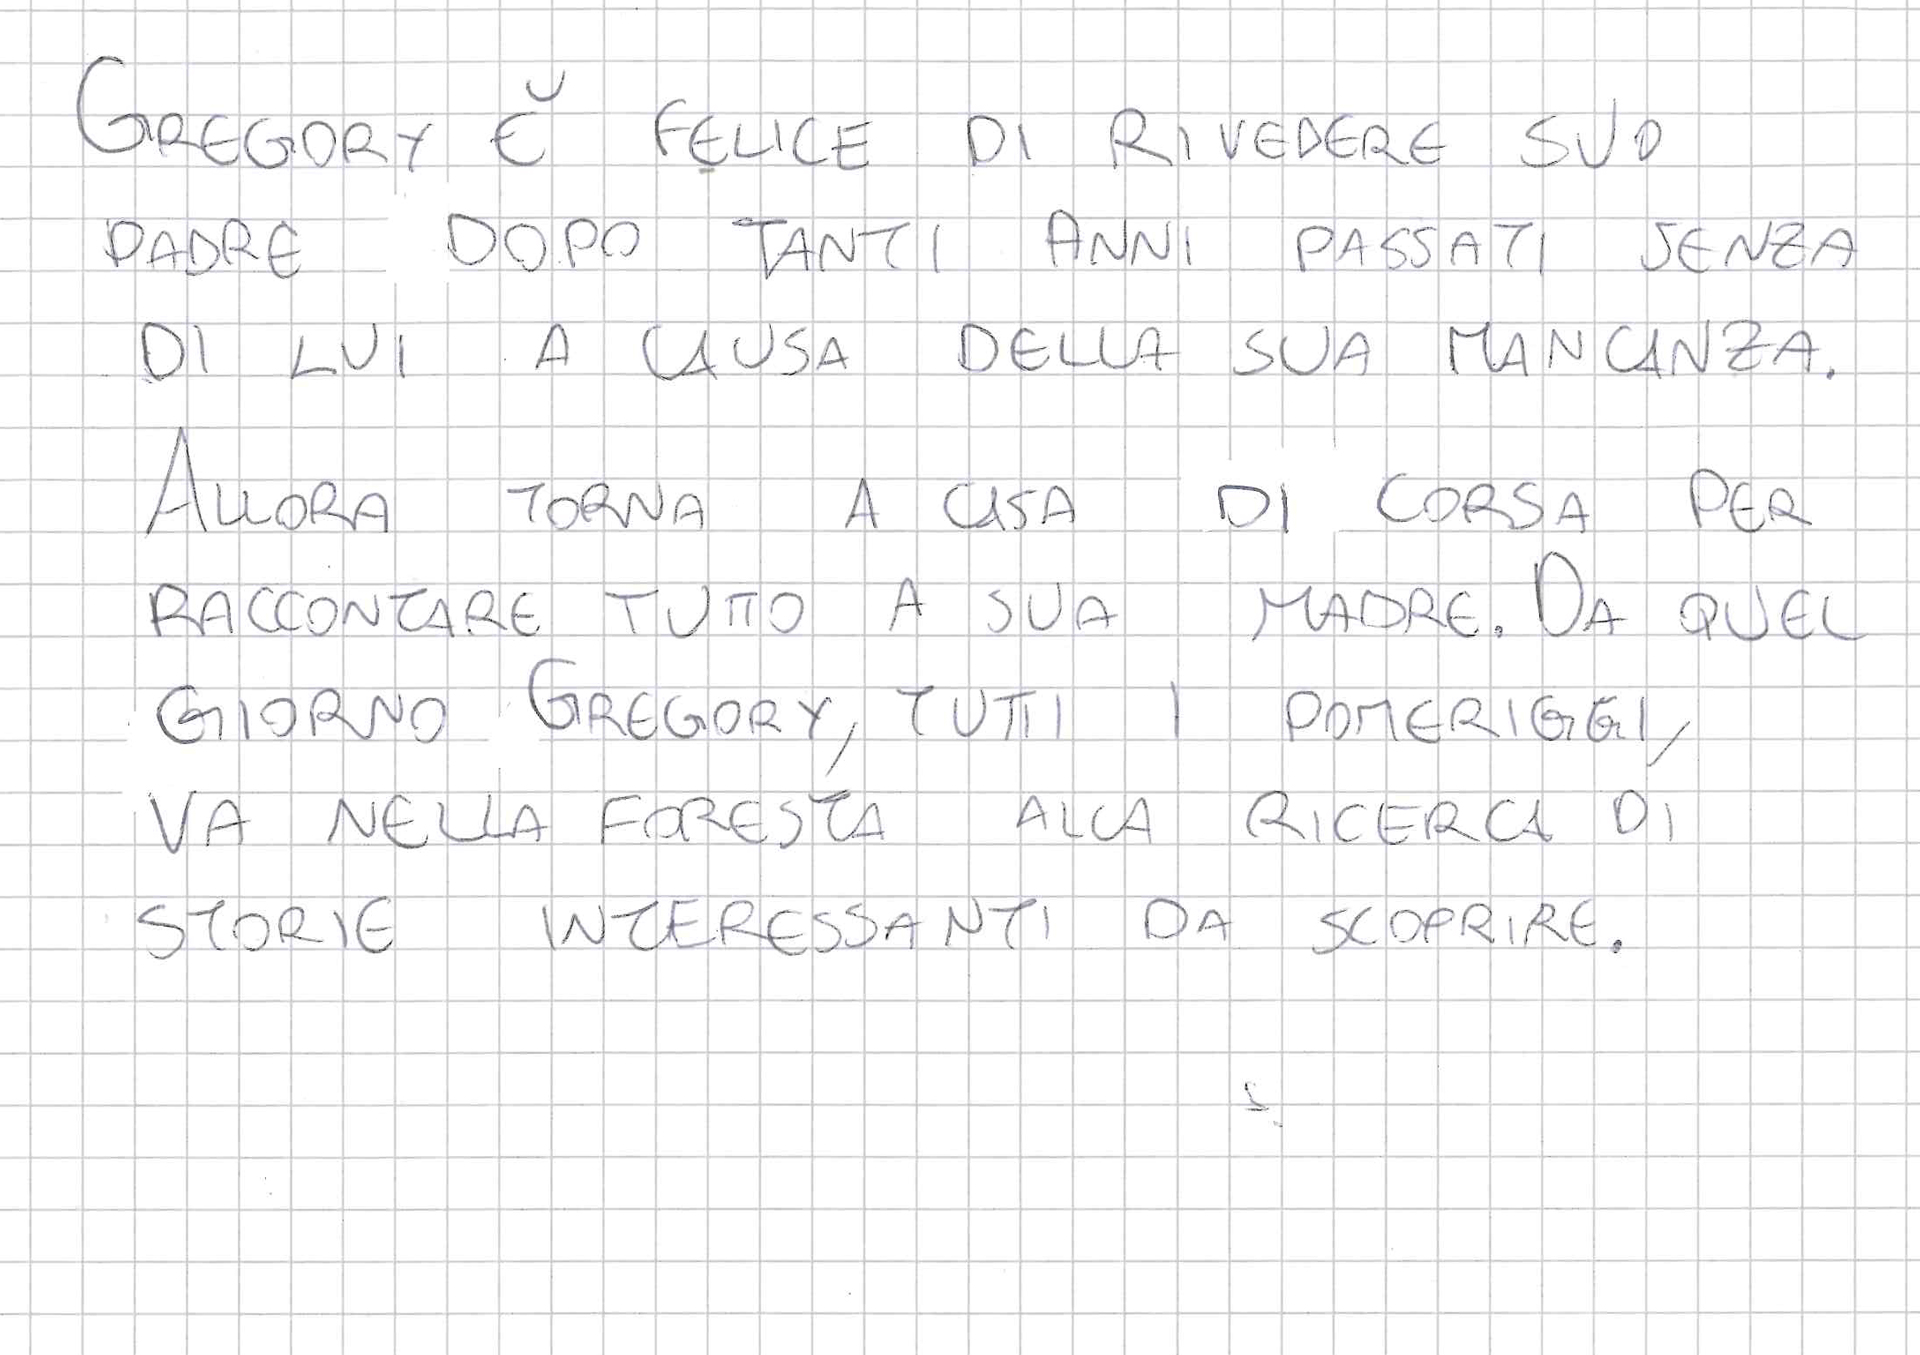 GREGORY È FELICE DI RIVEDERE SUO
PADRE DOPO TANTI ANNI PASSATI SENZA
DI LUI A CAUSA DELLA SUA MANCANZA.
ALLORA TORNA A CASA DI CORSA PER
RACCONTARE TUTTO A SUA MADRE. DA QUEL
GIORNO GREGORY, TUTTI I POMERIGGI,
VA NELLA FORESTA ALLA RICERCA DI
STORIE INTERESSANTI DA SCOPRIRE.